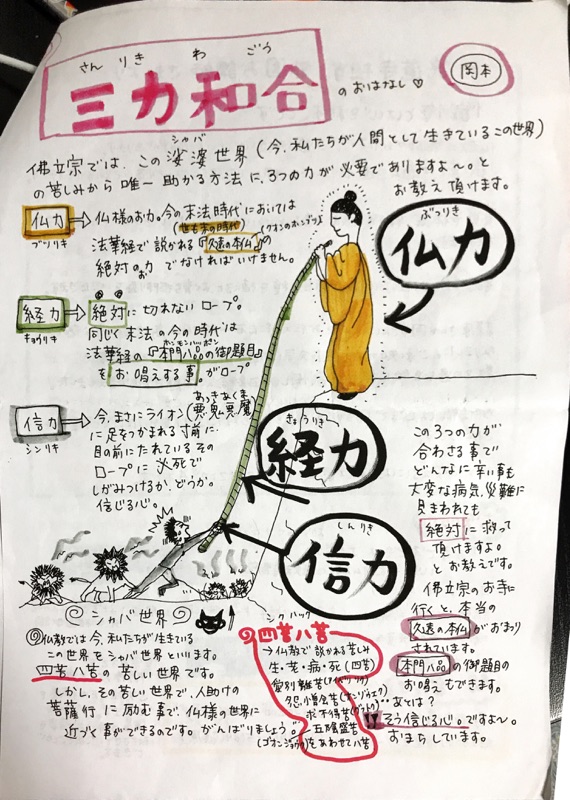 さんりきわごう
三力和合
のおはなし♡
岡本
シャバ
佛立宗では、この娑婆世界(今、私たちが人間として生きているこの世界)
の苦しみから唯一助かる方法に、3つの力が必要でありますよ〜。と
お教え頂けます。
仏力
ブツリキ
→仏様のお力。今の末法時代においては
世も末の時代
(クオンのホンブツ)
法華経で説かれる『久遠の本仏』の
絶対のお力でなければいけません。
ぶつりき
仏力
経力
キョウリキ
→絶対に切れないロープ。
同じく末法の今の時代は
ホンモンハッポン
法華経の『本門八品の御題目』
をお唱えする事。がロープ
信力
シンリキ
→今、まさにライオン(悪鬼悪魔
あっきあくま
に足をつかまれる寸前に
目の前にたれているその
ロープに必死で
しがみつけるか、どうか。
信じる心。
きょうりき
経力
しんりき
信力
この3つの力が
合わさる事で
どんなに辛い事も
大変な病気、災難に
見まわれても
絶対に救って
頂けますよ。
とお教えです。
佛立宗のお寺に
行くと、本当の
久遠の本仏がおまつり
されています。
本門八品の御題目の
お唱えもできます。
あとは?
そう信じる心。ですよ〜。
おまちしています。
シャバ世界
仏教では今、私たちが生きている
この世界をシャバ世界といいます。
四苦八苦の苦しい世界です。
しかし、その苦しい世界で、人助けの
菩薩行に励む事で、仏様の世界に
近づく事ができるのです。がんばりましょう。
シクハック
四苦八苦
→仏教で説かれる苦しみ
生・老・病・死(四苦)
愛別離苦(アイベツリク)
怨憎会苦(オンゾウエク)
求不得苦(グフトクク)
五陰盛苦
(ゴオンジョウク)をあわせて八苦